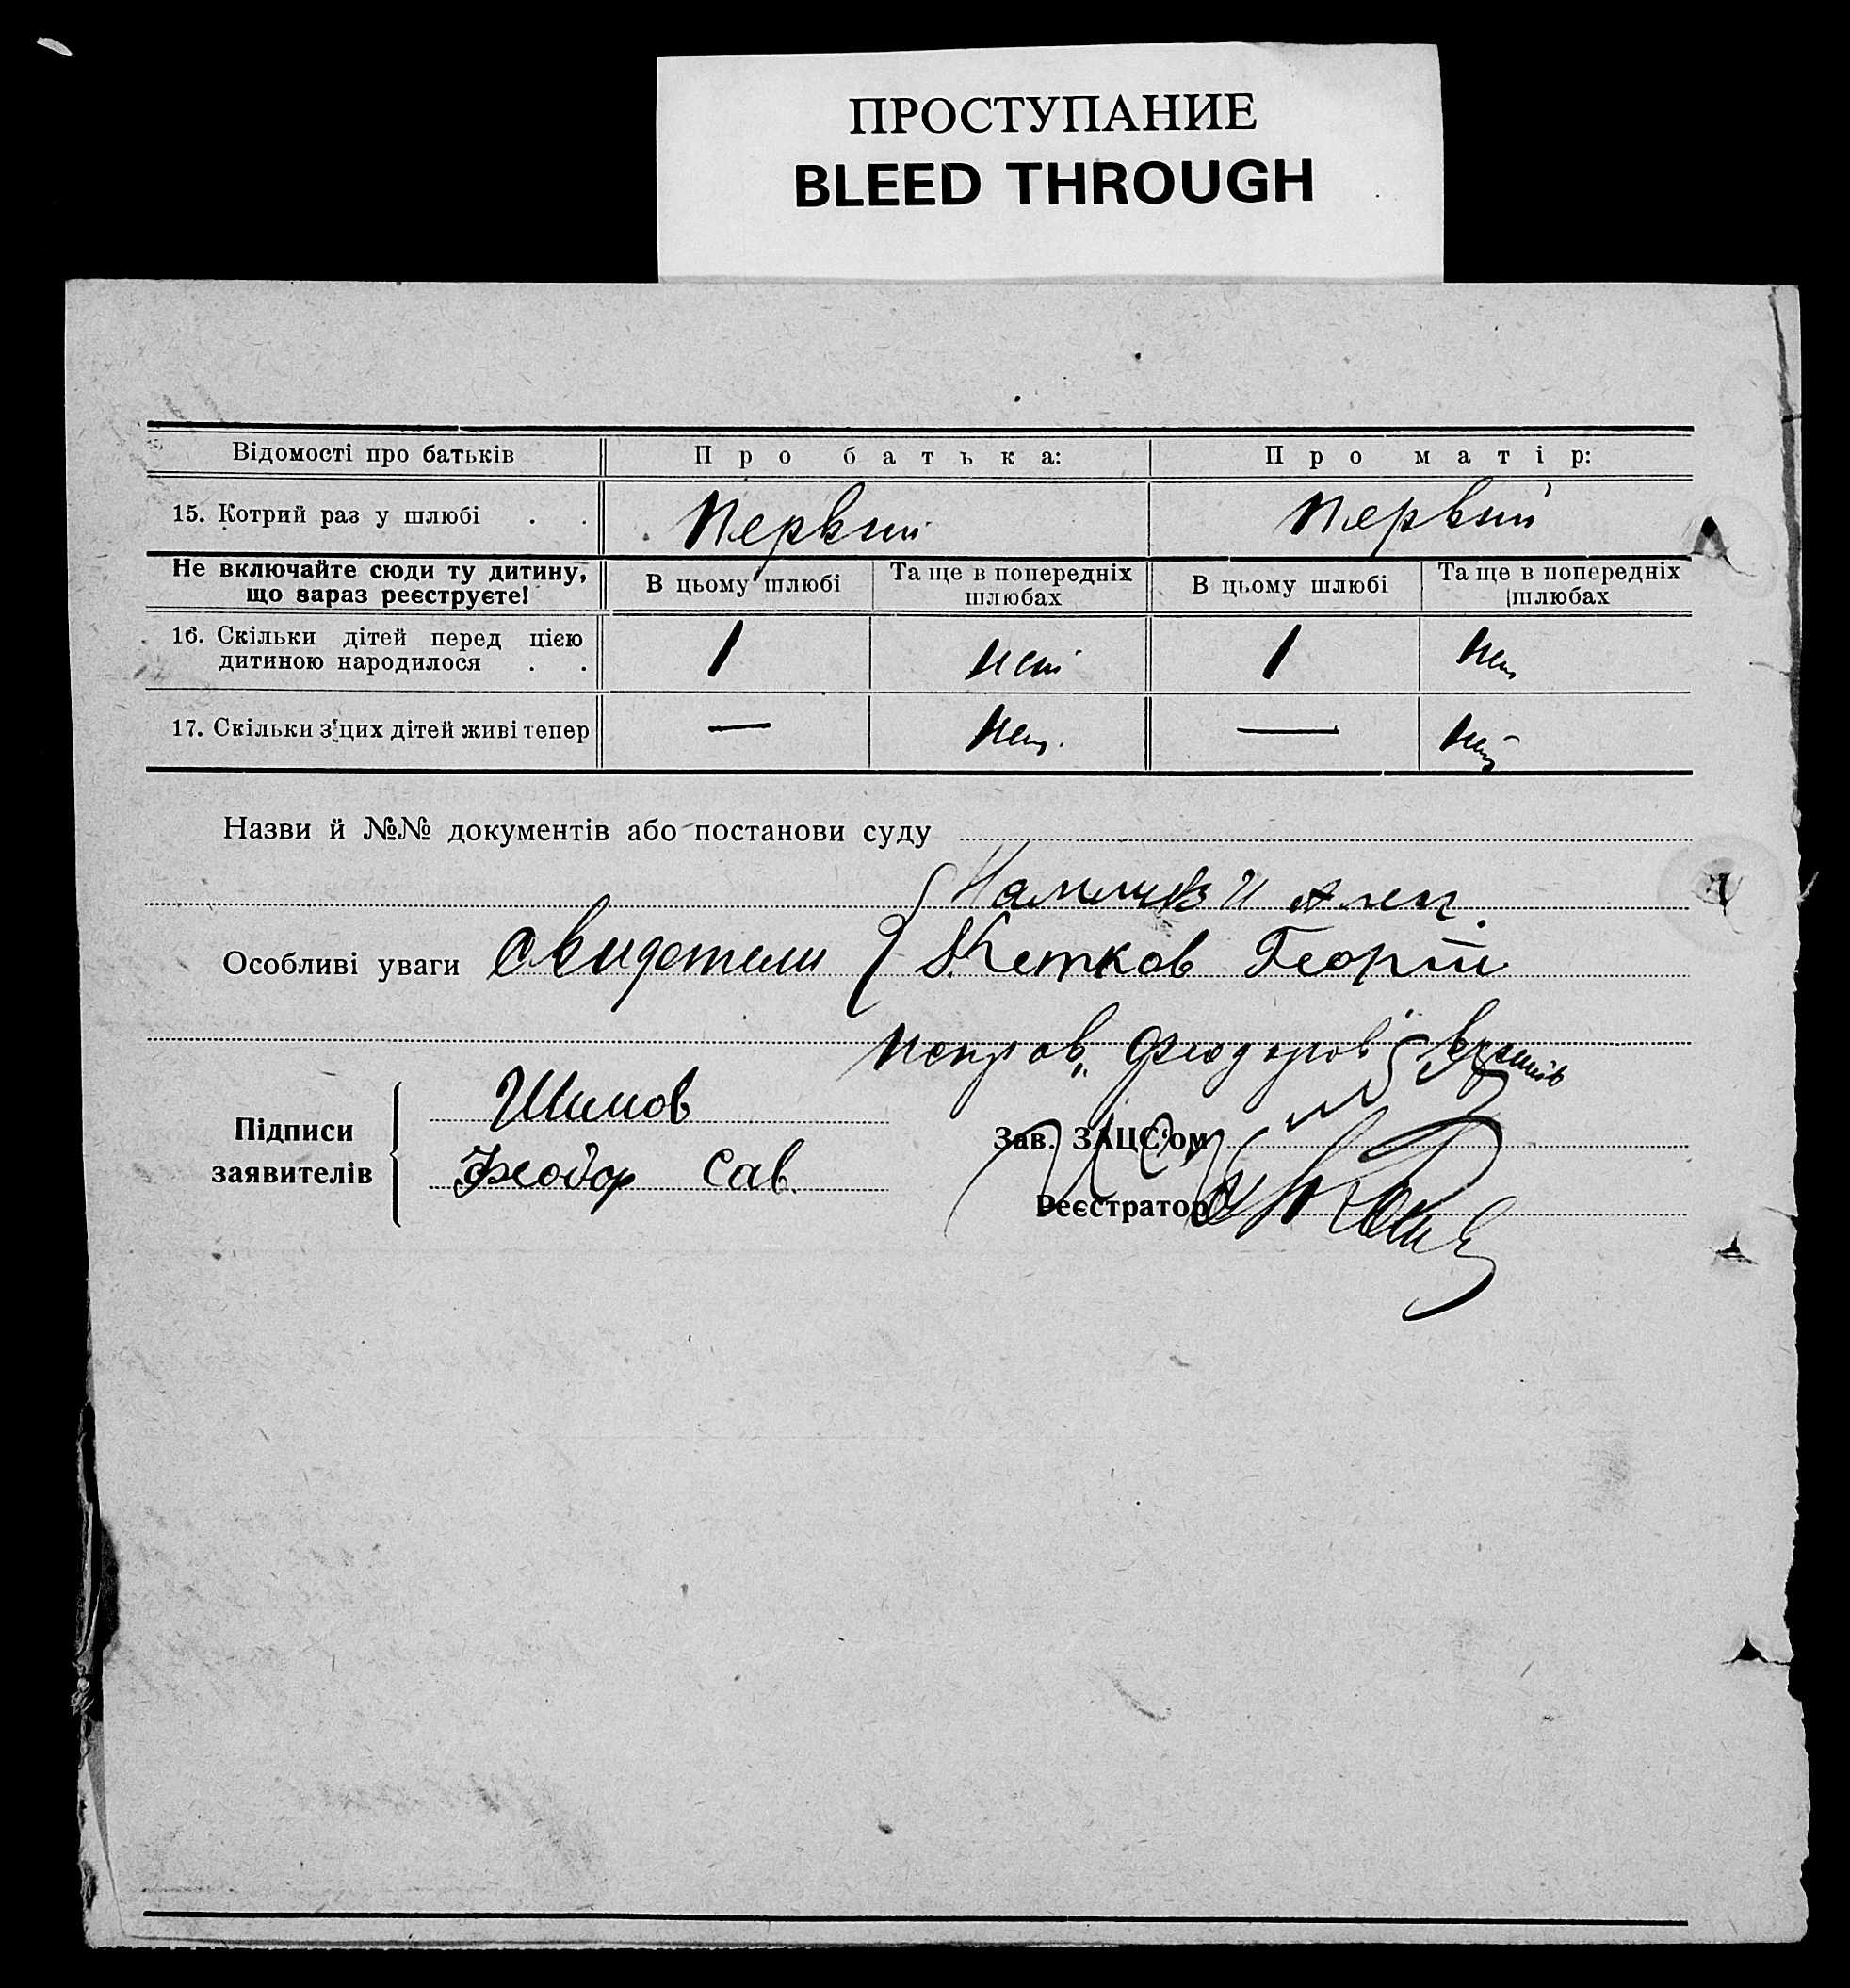 ПРОСТУПАНИЕ
BLEED THROUGH
Відомості про батьків Про батька: Про матір:
15. Котрий раз у шлюбі . . Первый Первый
Не включайте сюди ту дитину, що зараз реєструєте! В цьому шлюбі Та ще в попередніх шлюбах В цьому шлюбі Та ще в попередніх шлюбах
16. Скільки дітей перед цією дитиною народилося . . 1 нет 1 нет
17. Скільки з цих дітей живі тепер — нет. — нет
Назви й №№ документів або постанови суду
Особливі уваги Свидетели Кетков Георгій
Підписи заявителів
Шишов
Феодор Сав.
Зав. ЗАЦС'ом
Реєстратор